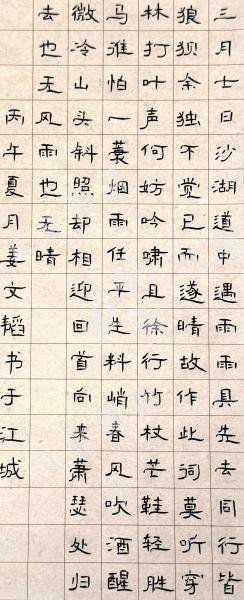 三月七日沙湖道中遇雨雨具先去同行皆
狼狈余独不觉已而遂晴故作此词莫听穿
林打叶声何妨吟啸且徐行竹杖芒鞋轻胜
马谁怕一蓑烟雨任平生料峭春风吹酒醒
微冷山头斜照却相迎回首向来萧瑟处归
去也无风雨也无晴
丙午夏月姜文韬书于江城